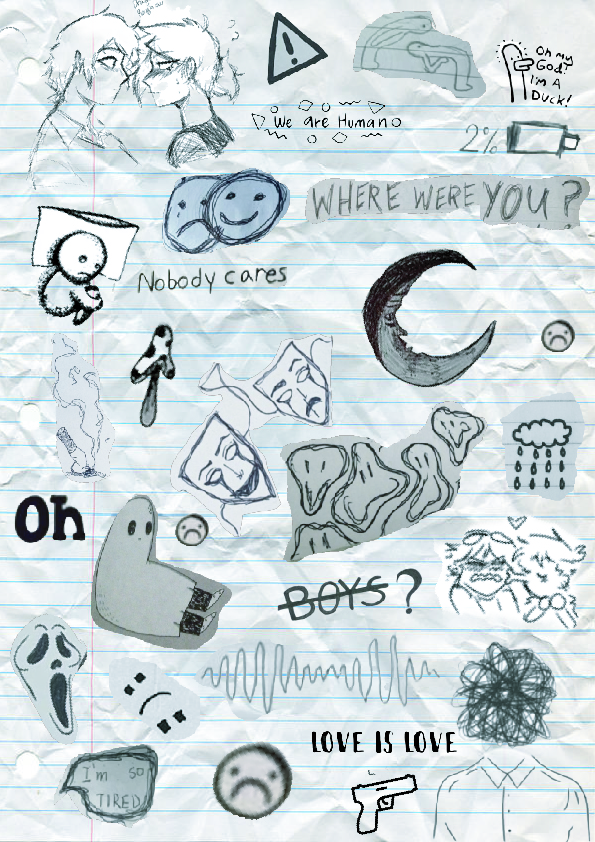 Oh my
God?
I'm A
Duck!
We are Human
2%
WHERE WERE YOU?
Nobody cares
Oh
BOYS?
LOVE IS LOVE
I'm so
TIRED